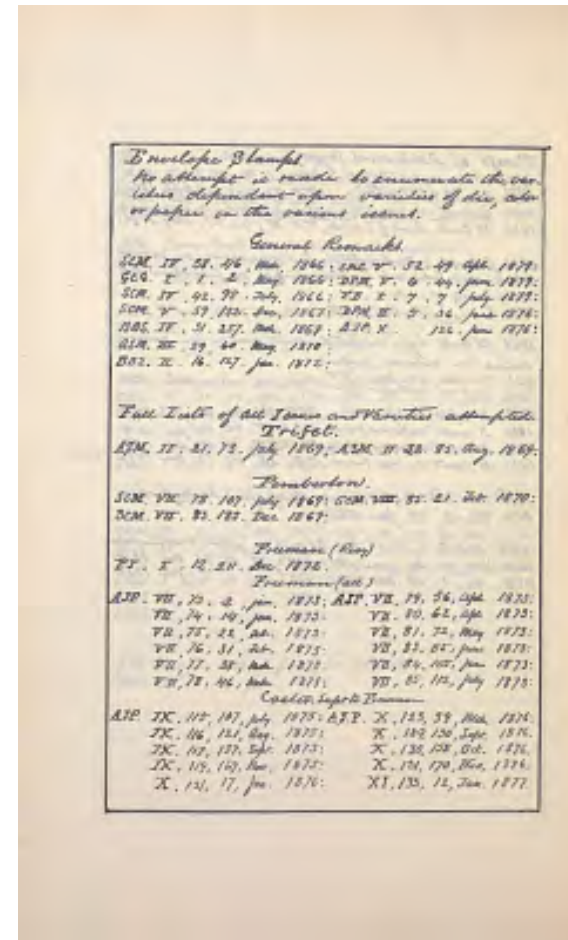 Envelope Stamps.
No attempt is made to enumerate the var-
ieties dependent upon varieties of die, color
or paper in the various issues.
General Remarks.
SCM. IV, 38. 46, 1866: V. 52. 49. Apl. 1879:
I. 1. 2, May 1866: V. 6. 44. June 1879:
SCM. IV, 42. 98. July, 1866: I. 7. 7 July 1879:
SCM. V, 59, Dec, 1867: 5. 36 June 1876:
IV, 51. 257. 1869: X. June 1876:
III, 29. 60. May 1870:
II. 16. 127. Jan. 1872:
Full Lists of all Issues and Varieties attempted.
Trifet.
AJM. II. 21. 73. July 1869; AJM. II. 22. 85. Aug. 1869:
Pemberton.
SCM. VII. 78. 107. July 1869: SCM. VIII. 85. 21. Feb. 1870:
SCM. VII. 83. 182. Dec. 1869:
Freeman
I. 12. Dec 1872.
Freeman (all)
AJP. VII, 73. 2, Jan. 1873; AJP. VII, 79, 56, Apl. 1873:
VII, 74. 14, Jan. 1873: VII. 80. 62, Apl. 1873:
VII, 75, 22, 1873: VII, 81. 72, May 1873:
VII, 76. 31, Feb. 1873: VII, 83. 85, June 1873:
VII, 77. 38, 1873: VII, 84, 105, June 1873:
VII, 78. 46, 1873: VII, 85, 112, July 1873:
AJP. IX, 115, 107, July 1875: AJP. X, 123, 39, Mch. 1876:
IX, 116, 121, Aug. 1875: X, 129, 130, Sept. 1876.
IX, 117, 137, Sept. 1875: X, 130, 158, Oct. 1876.
IX, 119, 169, Nov, 1875: X, 131, 170, Nov, 1876.
X, 121, 17, Jan. 1876: XI, 133, 12, Jan. 1877.